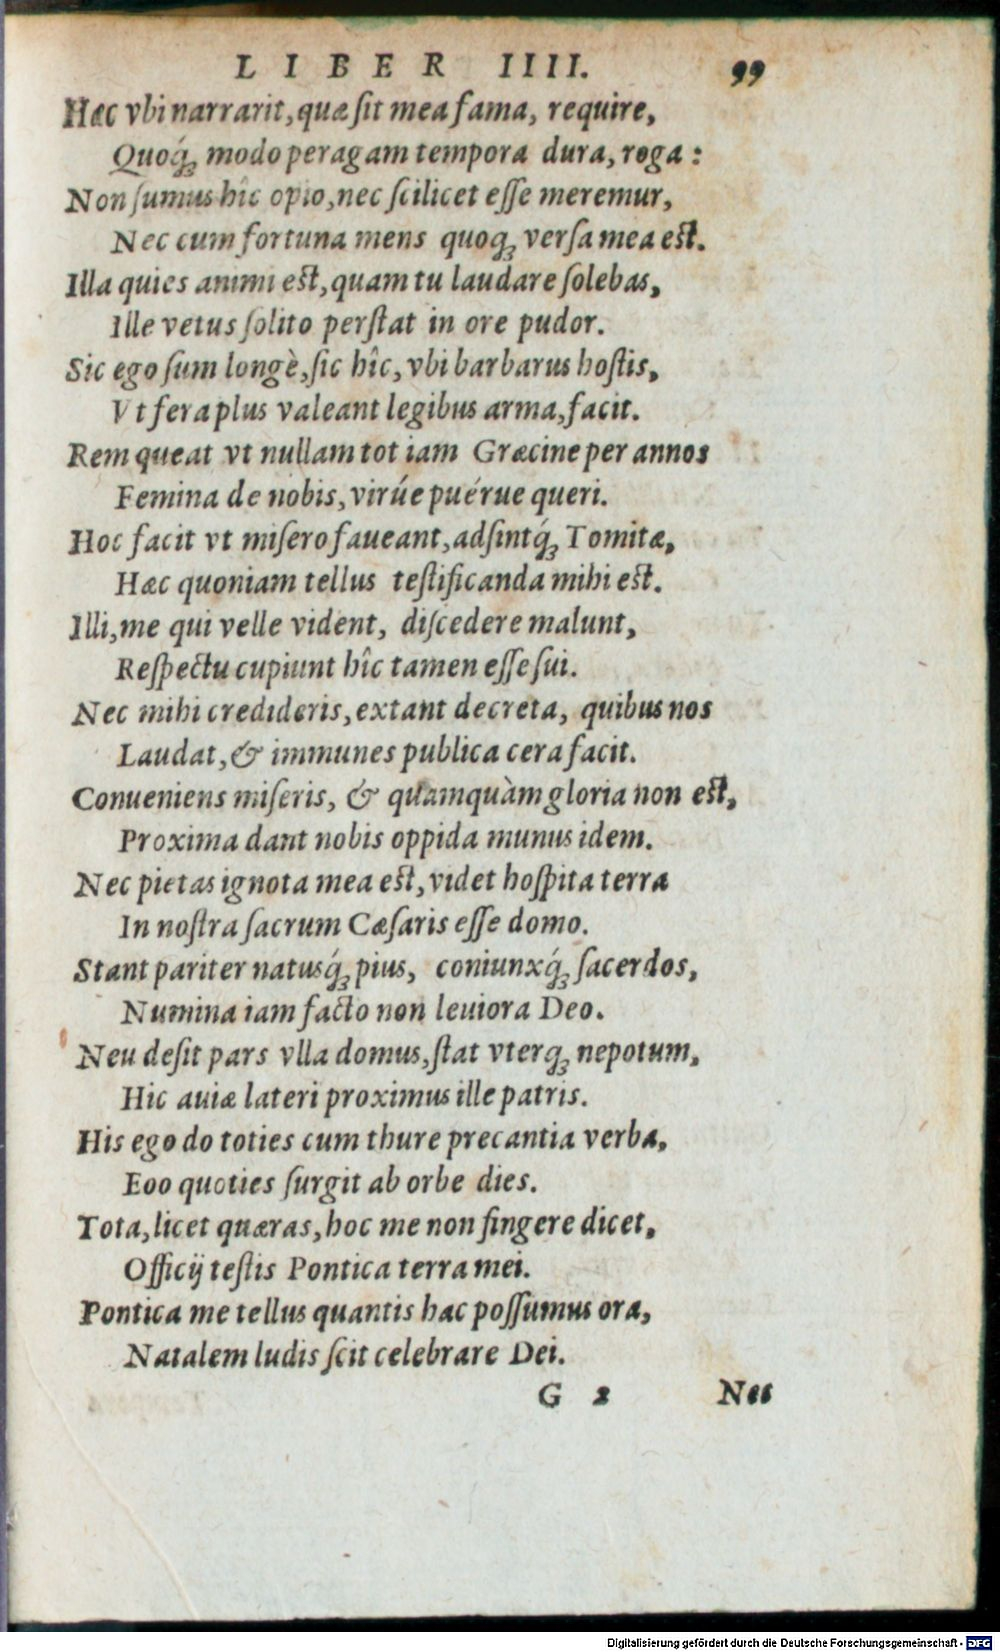 LIBER IIII. 99
Hæc vbi narrarit, quæ sit mea fama, require,
Quoq́; modo peragam tempora dura, roga:
Non sumus hîc opio, nec scilicet esse meremur,
Nec cum fortuna mens quoq; versa mea est.
Illa quies animi est, quam tu laudare solebas,
Ille vetus solito perstat in ore pudor.
Sic ego sum longè, sic hîc, vbi barbarus hostis,
Vt fera plus valeant legibus arma, facit.
Rem queat vt nullam tot iam Græcine per annos
Femina de nobis, virúe puérue queri.
Hoc facit vt misero faueant, adsintq́; Tomitæ,
Hæc quoniam tellus testificanda mihi est.
Illi, me qui velle vident, discedere malunt,
Respectu cupiunt hîc tamen esse sui.
Nec mihi credideris, extant decreta, quibus nos
Laudat, & immunes publica cera facit.
Conueniens miseris, & quamquàm gloria non est,
Proxima dant nobis oppida munus idem.
Nec pietas ignota mea est, videt hospita terra
In nostra sacrum Cæsaris esse domo.
Stant pariter natusq́; pius, coniunxq́; sacerdos,
Numina iam facto non leuiora Deo.
Neu desit pars vlla domus, stat vterq; nepotum,
Hic auiæ lateri proximus ille patris.
His ego do toties cum thure precantia verba,
Eoo quoties surgit ab orbe dies.
Tota, licet quæras, hoc me non fingere dicet,
Officij testis Pontica terra mei.
Pontica me tellus quantis hac possumus ora,
Natalem ludis scit celebrare Dei.
G 2 Nec
Digitalisierung gefördert durch die Deutsche Forschungsgemeinschaft - DFG